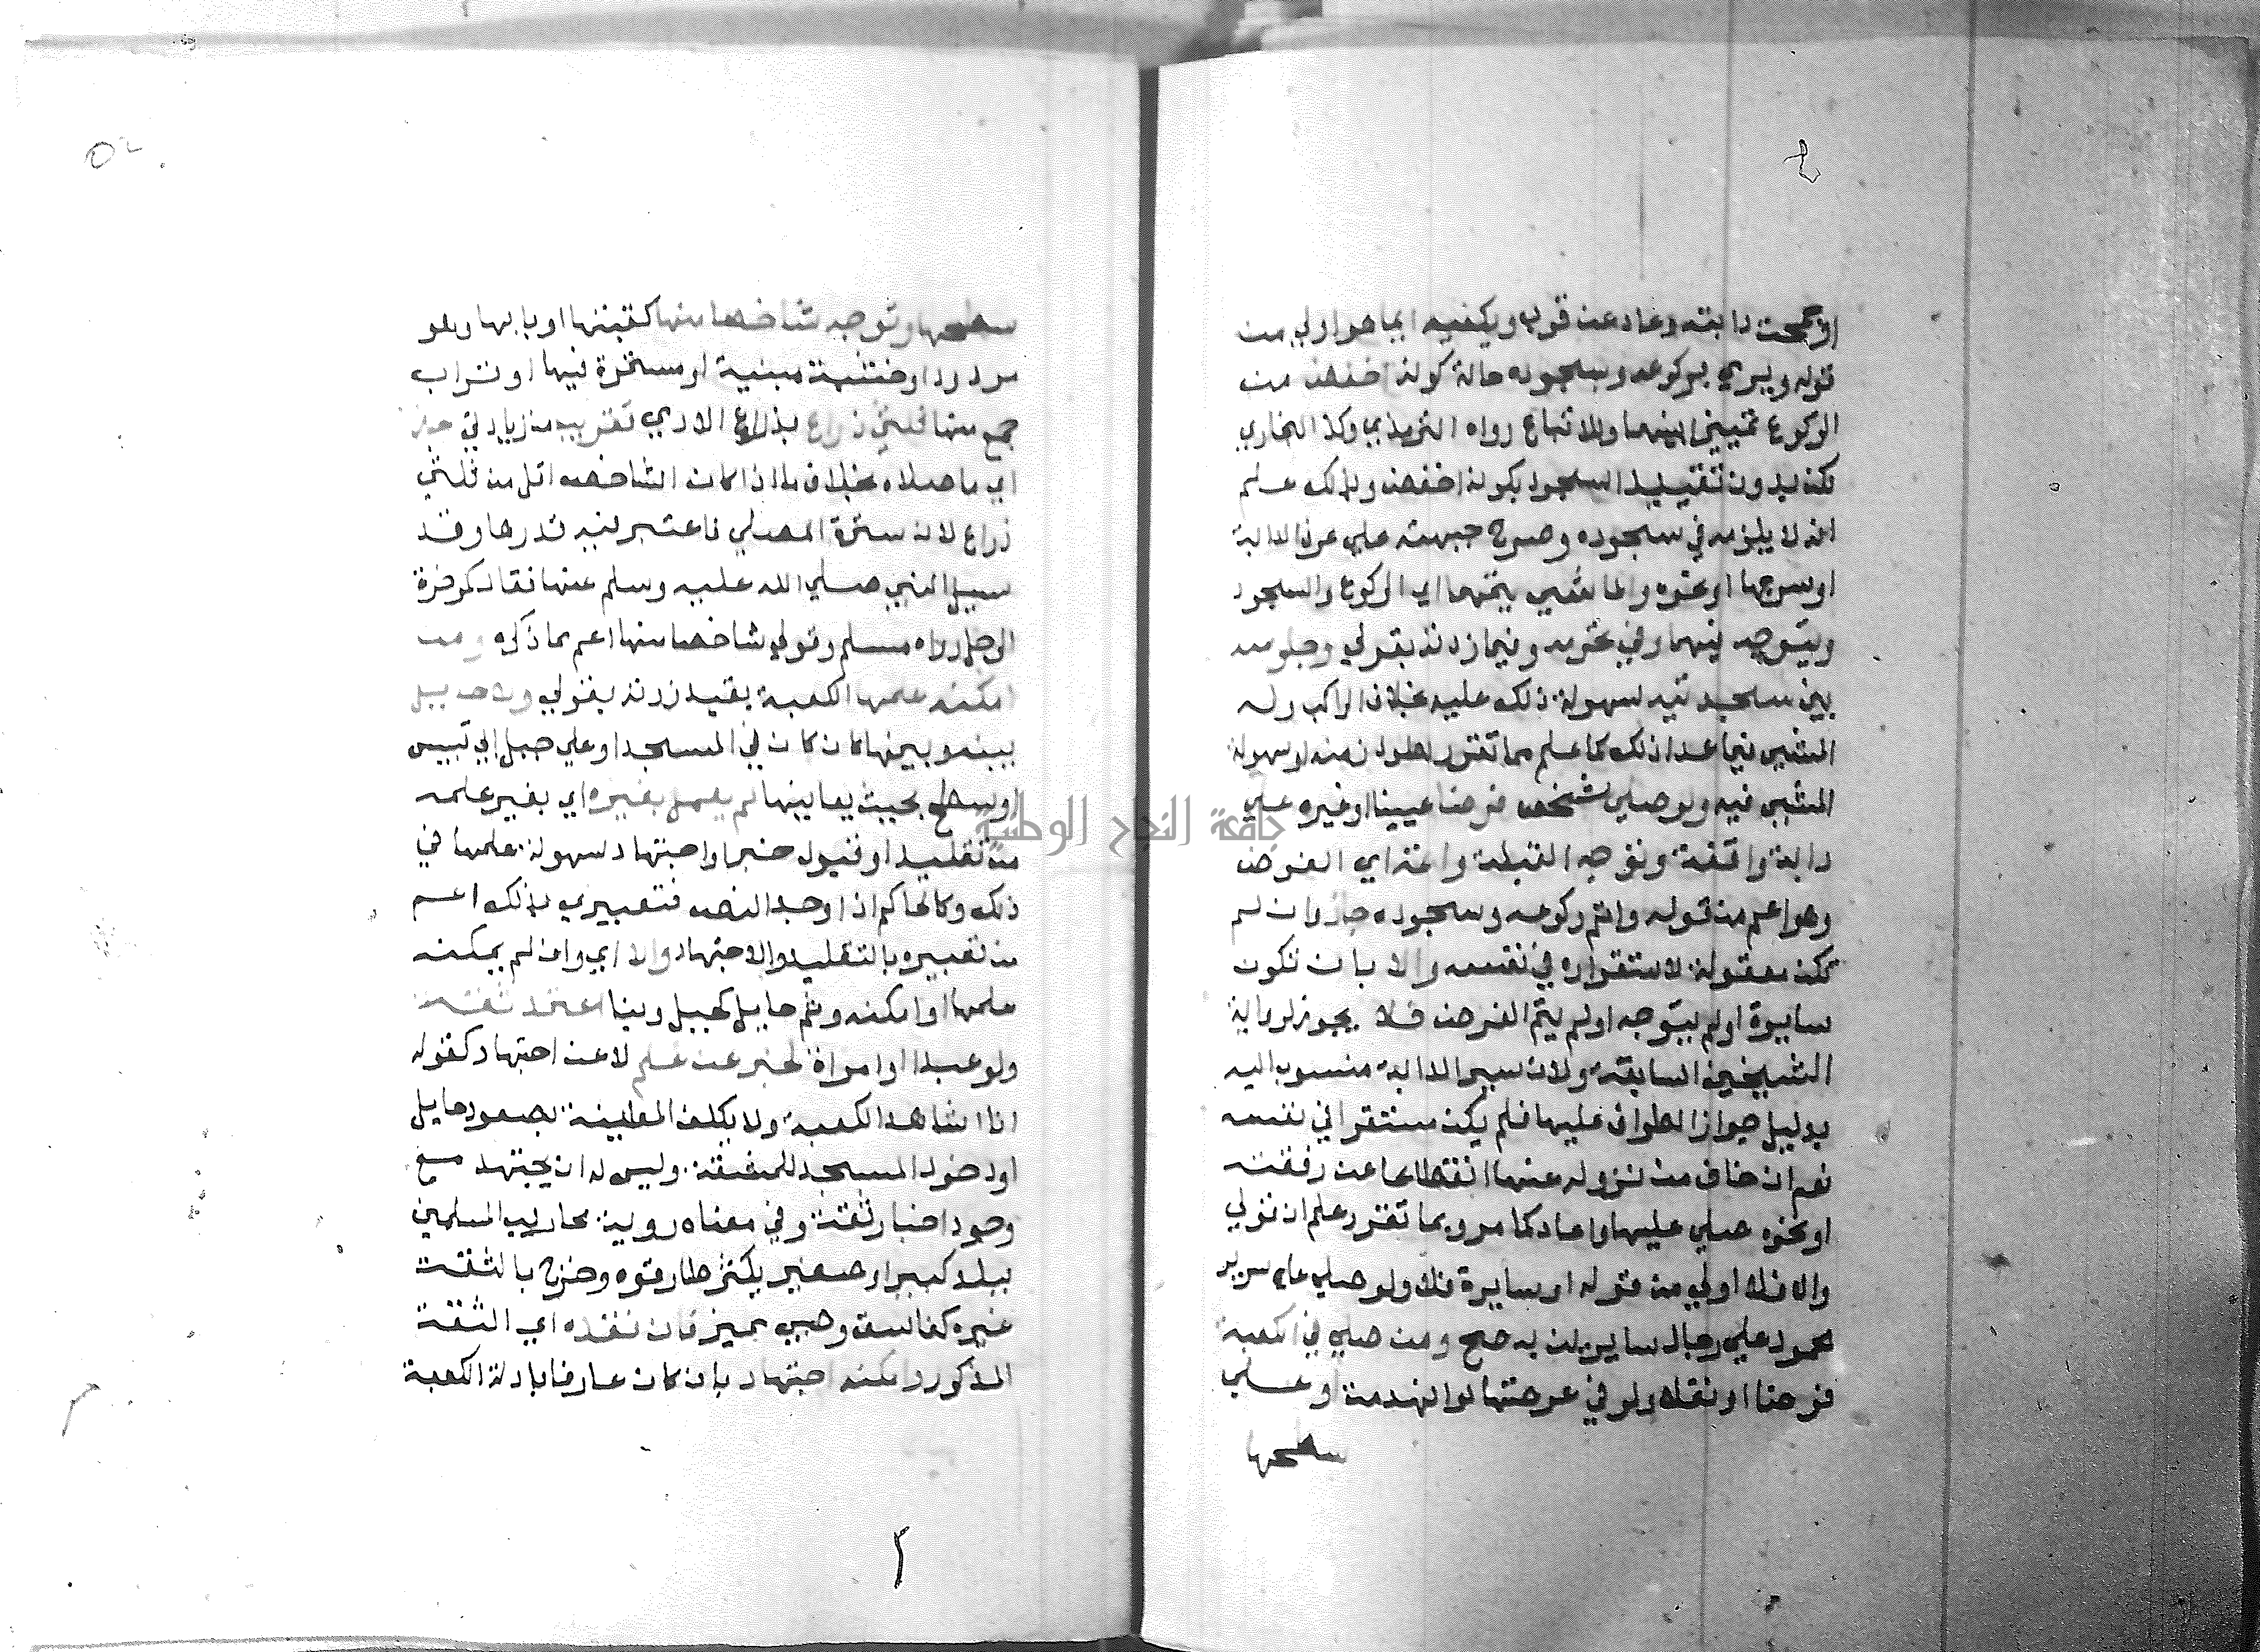 او جمحت دابته وعاد عن قرب ويكفيه ايما هو اولي من
قوله ويومي بركوعه وسجوده حالة كونه اخفض من
الركوع تمييزا بينهما وللاتباع رواه الترمذي وكذا البخاري
لكن بدون تقييد السجود بكونه اخفض وبذلك علم
انه لا يلزمه في سجوده وضع جبهته علي عرف الدابة
او سرجها او نحوه والماشي يتمهما اي الركوع والسجود
ويتوجه فيهما وفي تحرمه وفيما زدته بقولي وجلوسه
بين سجدتيه لسهولة ذلك عليه بخلاف الراكب وله
المشي فيما عدا ذلك كما علم مما تقرر لطول زمنه او سهولة
المشي فيه ولو صلي شخص فرضا عينيا او غيره علي
دابة واقفة وتوجه القبلة واتمه اي الفرض
وهو اعم من قوله واتم ركوعه وسجوده جاز وان لم
تكن معقولة لاستقراره في نفسه والا بان تكون
سايرة او لم يتوجه او لم يتم الفرض فلا يجوز لرواية
الشيخين السابقة ولان سير الدابة منسوب اليه
بدليل جواز الطواف عليها فلم يكن مستقرا في نفسه
نعم ان خاف من نزوله عنها انقطاعا عن رفقته
او نحوه صلي عليها واعاد كما مر وبما تقرر علم ان قولي
والا فلا اولي من قوله او سايرة فلا ولو صلي علي سرير
محمود علي رجال سايرين به صح ومن صلي في الكعبة
فرضا او نفلا ولو في عرصتها لو انهدمت او علي
سطحها
سطحها وتوجه شاخصا منها كعتبتها او بابها وهو
مردود او خشبة مبنية او مسمرة فيها او تراب
جمع منها ثلثي ذراع بذراع الادمي تقريبا من زيادتي جاز
اي ما صلاه بخلاف ما اذا كان الشاخص اقل من ثلثي
ذراع لانه سترة المصلي فاعتبر فيه قدرها وقد
سيل النبي صلي الله عليه وسلم عنها فقال كموخرة
الرحل رواه مسلم وقولي شاخصا منها اعم مما ذكره ومن
امكنه علمها الكعبة بقيد زدته بقولي ولا حايل
بينه وبينها كان كان في المسجد او علي جبل ابي قبيس
او سطح بحيث يعاينها لم يعمل بغيره اي بغير علمه
من تقليد او قبول خبر او اجتهاد لسهولة علمها في
ذلك وكالحاكم اذا وجد النص فتعبيري بذلك اعم
من تعبيره بالتقليد والاجتهاد والا اي وان لم يمكنه
علمها او امكنه وثم حايل كجبل وبنا اعتمد ثقة
ولو عبدا او امراة يخبر عن علم لا عن اجتهاد كقوله
انا اشاهد الكعبة ولا يكلف المعاينة بصعود حايل
او دخول المسجد للمشقة وليس له ان يجتهد مع
وجود اخبار ثقة وفي معناه روية محاريب المسلمين
ببلد كبير او صغير يكثر طارقوه وخرج بالثقة
غيره كفاسق وصبي مميز فان فقده اي الثقة
المذكور وامكنه اجتهاد بان كان عارفا بادلة الكعبة
جامعة النجاح الوطنية